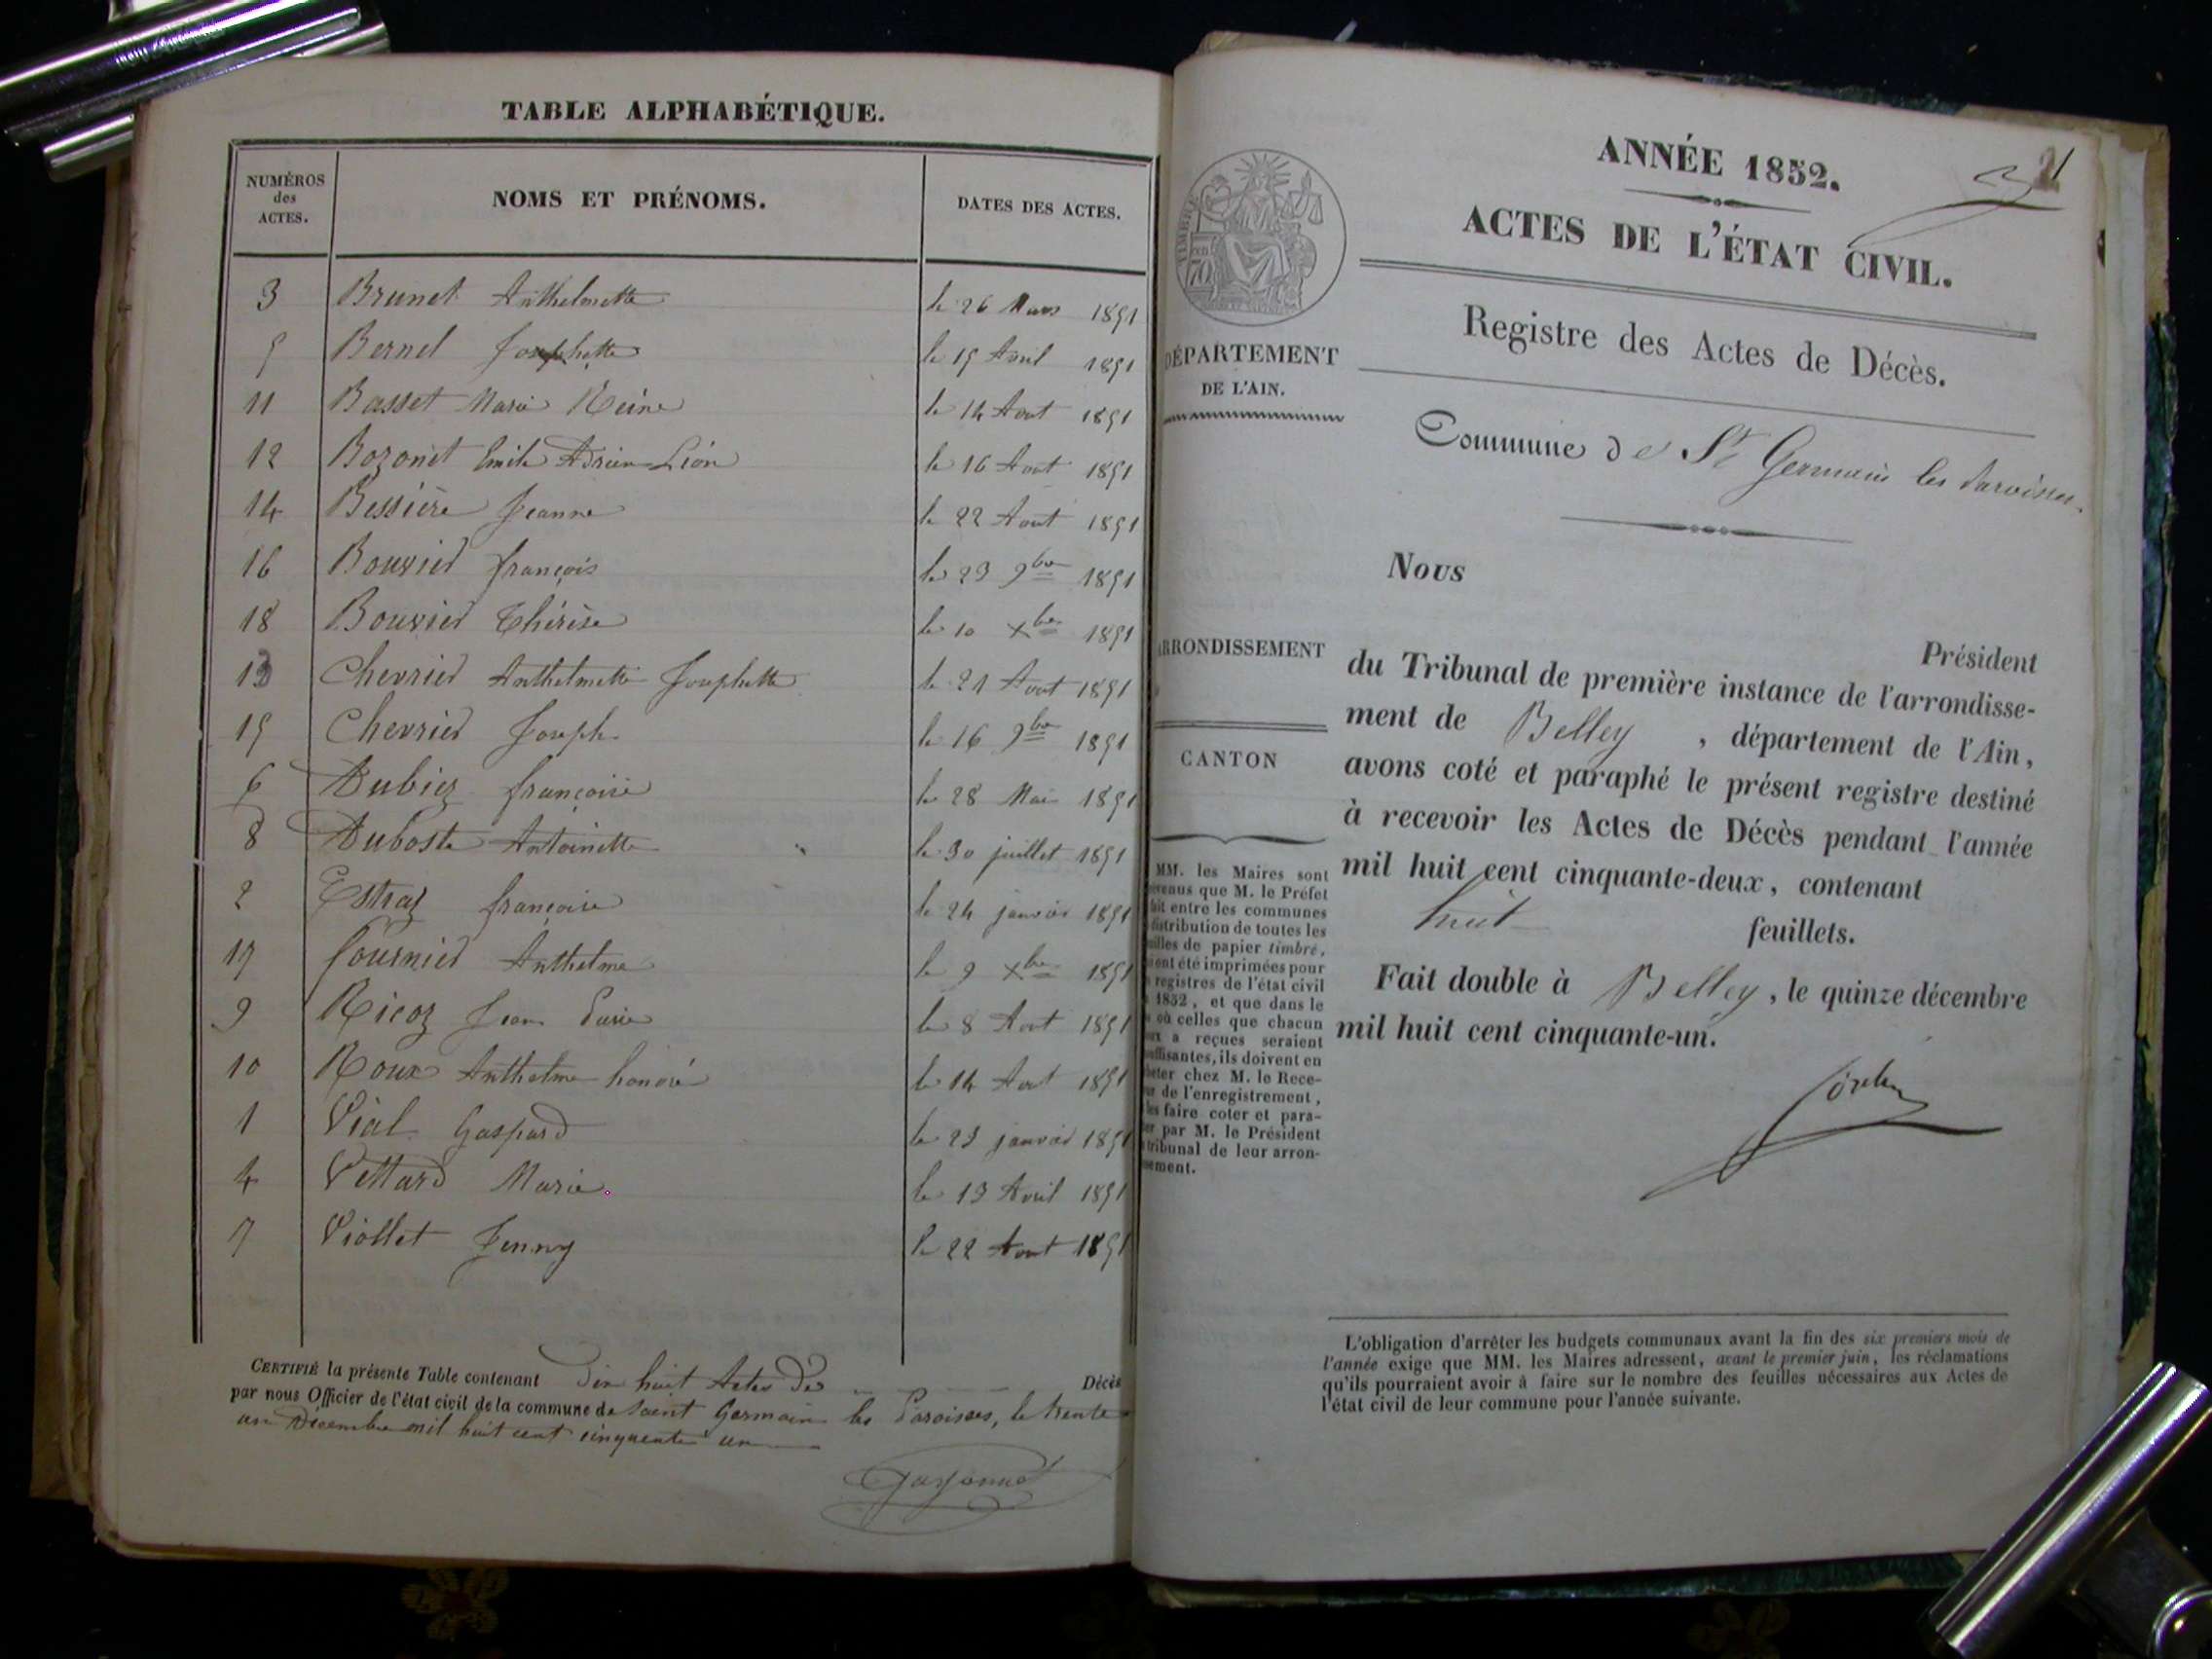 TABLE ALPHABÉTIQUE.
NUMÉROS des ACTES. NOMS ET PRÉNOMS. DATES DES ACTES.
3 Brunet Anthelmette le 26 Mars 1851
5 Bernel Josephette le 15 Avril 1851
11 Basset Marie Reine le 14 Aout 1851
12 Bozonet Emile Adrien Léon le 16 Aout 1851
14 Bessière Jeanne le 22 Aout 1851
16 Bouvier françois le 23 9bre 1851
18 Bouvier Thérèse le 10 Xbre 1851
13 Chevrier Anthelmette Josephette le 21 Aout 1851
15 Chevrier Joseph le 16 9bre 1851
6 Dubiez françoise le 28 Mai 1851
8 Duboste Antoinette le 30 juillet 1851
2 Estraz françoise le 24 janvier 1851
17 fournier Anthelme le 9 Xbre 1851
9 Ricoz Jean le 8 Aout 1851
10 Roux Anthelme honoré le 14 Aout 1851
1 Vial Gaspard le 23 janvier 1851
4 Vettard Marie. le 13 Avril 1851
7 Viollet Jenny le 22 Aout 1851
CERTIFIÉ la présente Table contenant Dix huit Actes de Décès
par nous Officier de l'état civil de la commune de Saint Germain les Paroisses, le trente
un Décembre mil huit cent cinquante un
TIMBRE
70
DÉPARTEMENT
DE L'AIN.
ARRONDISSEMENT
CANTON
MM. les Maires sont
prévenus que M. le Préfet
fait entre les communes
distribution de toutes les
feuilles de papier timbré,
ont été imprimées pour
registres de l'état civil
1852, et que dans le
où celles que chacun
a reçues seraient
insuffisantes, ils doivent en
acheter chez M. le Rece-
veur de l'enregistrement,
les faire coter et para-
pher par M. le Président
tribunal de leur arron-
dissement.
21
ANNÉE 1852.
ACTES DE L'ÉTAT CIVIL.
Registre des Actes de Décès.
Commune de St Germain les Paroisses.
Nous
Président
du Tribunal de première instance de l'arrondisse-
ment de Belley, département de l'Ain,
avons coté et paraphé le présent registre destiné
à recevoir les Actes de Décès pendant l'année
mil huit cent cinquante-deux, contenant
huit feuillets.
Fait double à Belley, le quinze décembre
mil huit cent cinquante-un.
L'obligation d'arrêter les budgets communaux avant la fin des six premiers mois de
l'année exige que MM. les Maires adressent, avant le premier juin, les réclamations
qu'ils pourraient avoir à faire sur le nombre des feuilles nécessaires aux Actes de
l'état civil de leur commune pour l'année suivante.